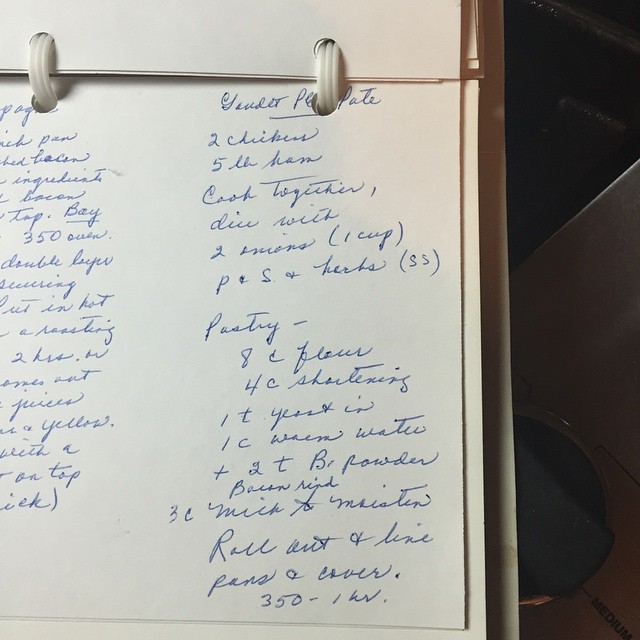 ich pan
bacon
ingredients
bacon
top. Bay
350 oven.
double layer
securing
Put in hot
a roasting
2 hrs. or
comes out
juices
yellow.
with a
on top
ick)
Gaudet Pate
2 chickens
5 lb ham
Cook together,
dice with
2 onions (1 cup)
p & S. & herbs (SS)
Pastry -
8 c flour
4 c shortening
1 t yeast in
1 c warm water
+ 2 t B. powder
Bacon rind
3 c milk to moisten
Roll out & line
pans & cover.
350 - 1 hr.
MEDIUM